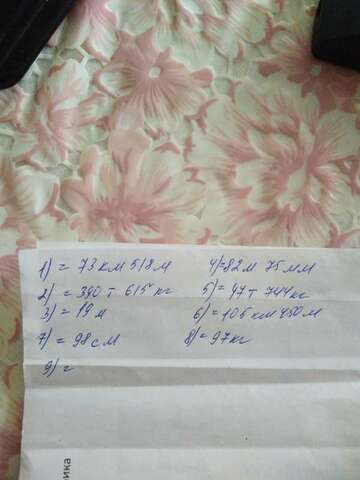 1) = 73 км 518 м 4) = 82 м 75 мм
2) = 390 т 615 кг 5) = 47 т 744 кг
3) = 19 м 6) = 105 км 450 м
7) = 98 см 8) = 97 кг
9) =
ика